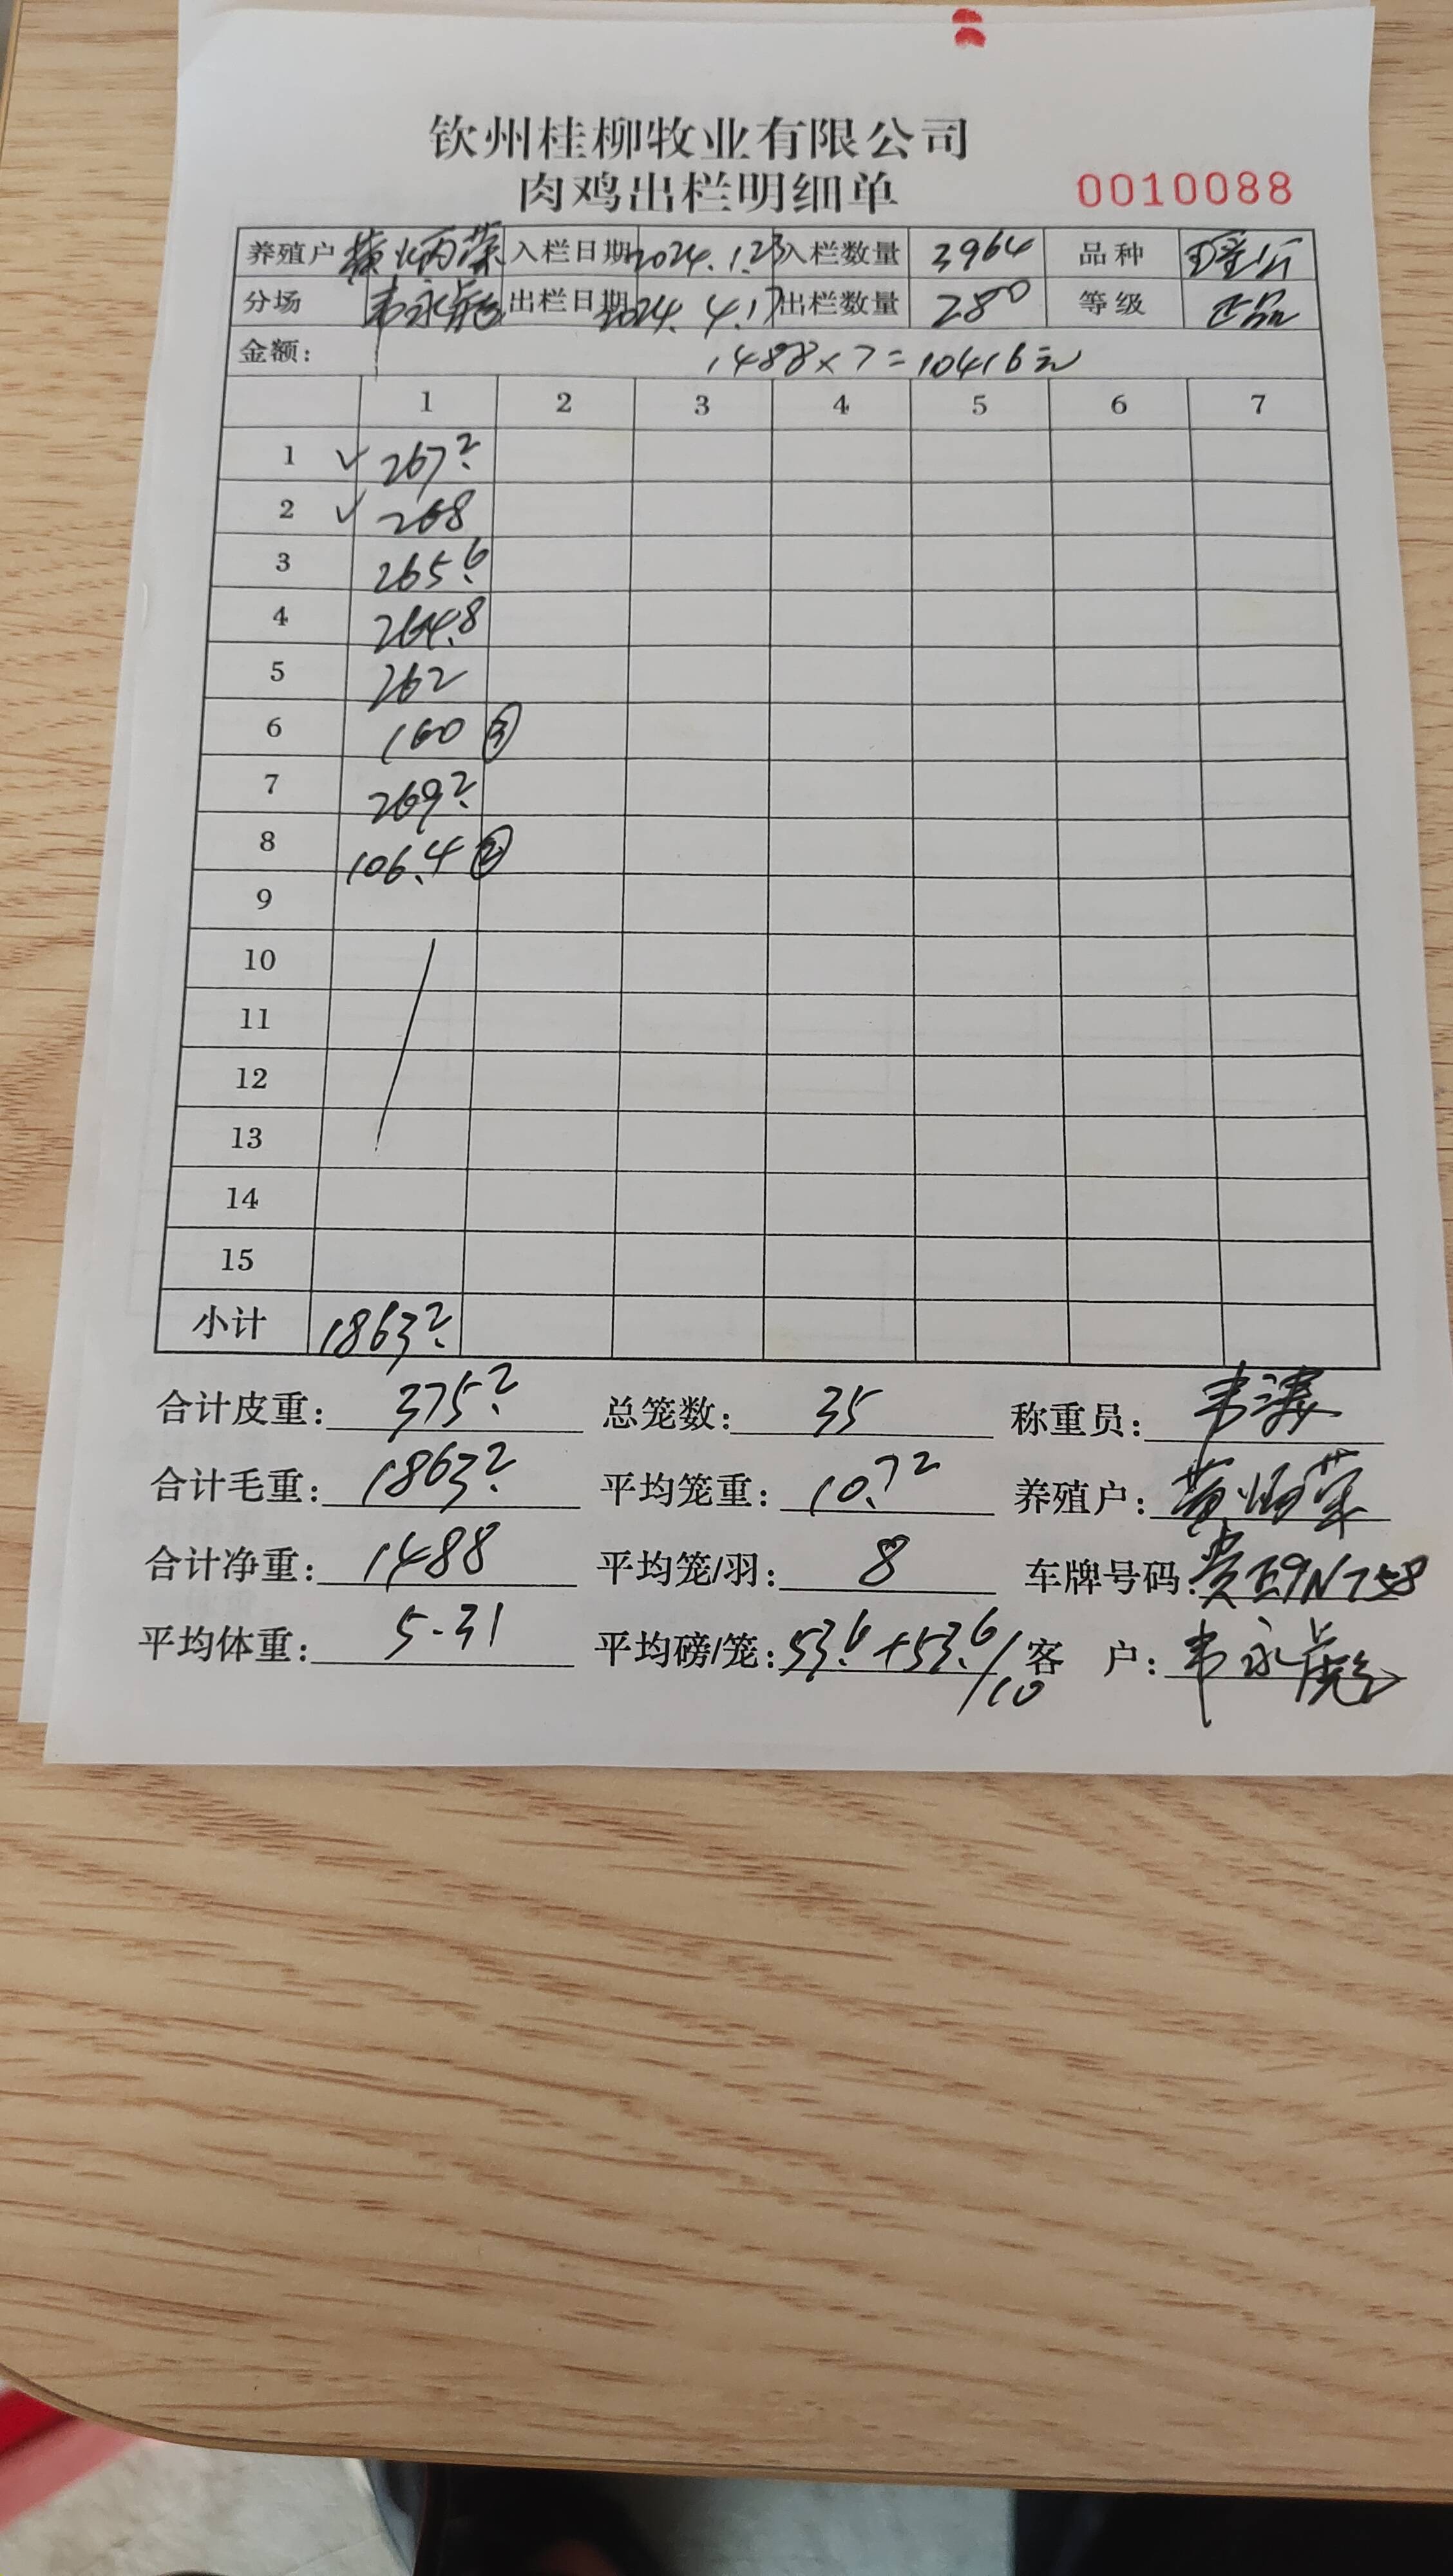 钦州桂柳牧业有限公司
肉鸡出栏明细单 0010088
养殖户 黄炳荣 入栏日期 2024.1.23 入栏数量 3964 品种 瑶公
分场 韦永彪 出栏日期 2024.4.17 出栏数量 280 等级 正品
金额: 1488×7=10416元
1 2 3 4 5 6 7
1 ✓ 267.2
2 ✓ 268
3 265.6
4 264.8
5 262
6 160 ③
7 269.2
8 106.4 ②
9
10
11
12
13
14
15
小计 1863.2
合计皮重: 375.2 总笼数: 35 称重员: 韦
合计毛重: 1863.2 平均笼重: 10.72 养殖户: 黄炳荣
合计净重: 1488 平均笼/羽: 8 车牌号码: 贵E9N758
平均体重: 5.31 平均磅/笼: 53.6+53.6/10 客户: 韦永彪